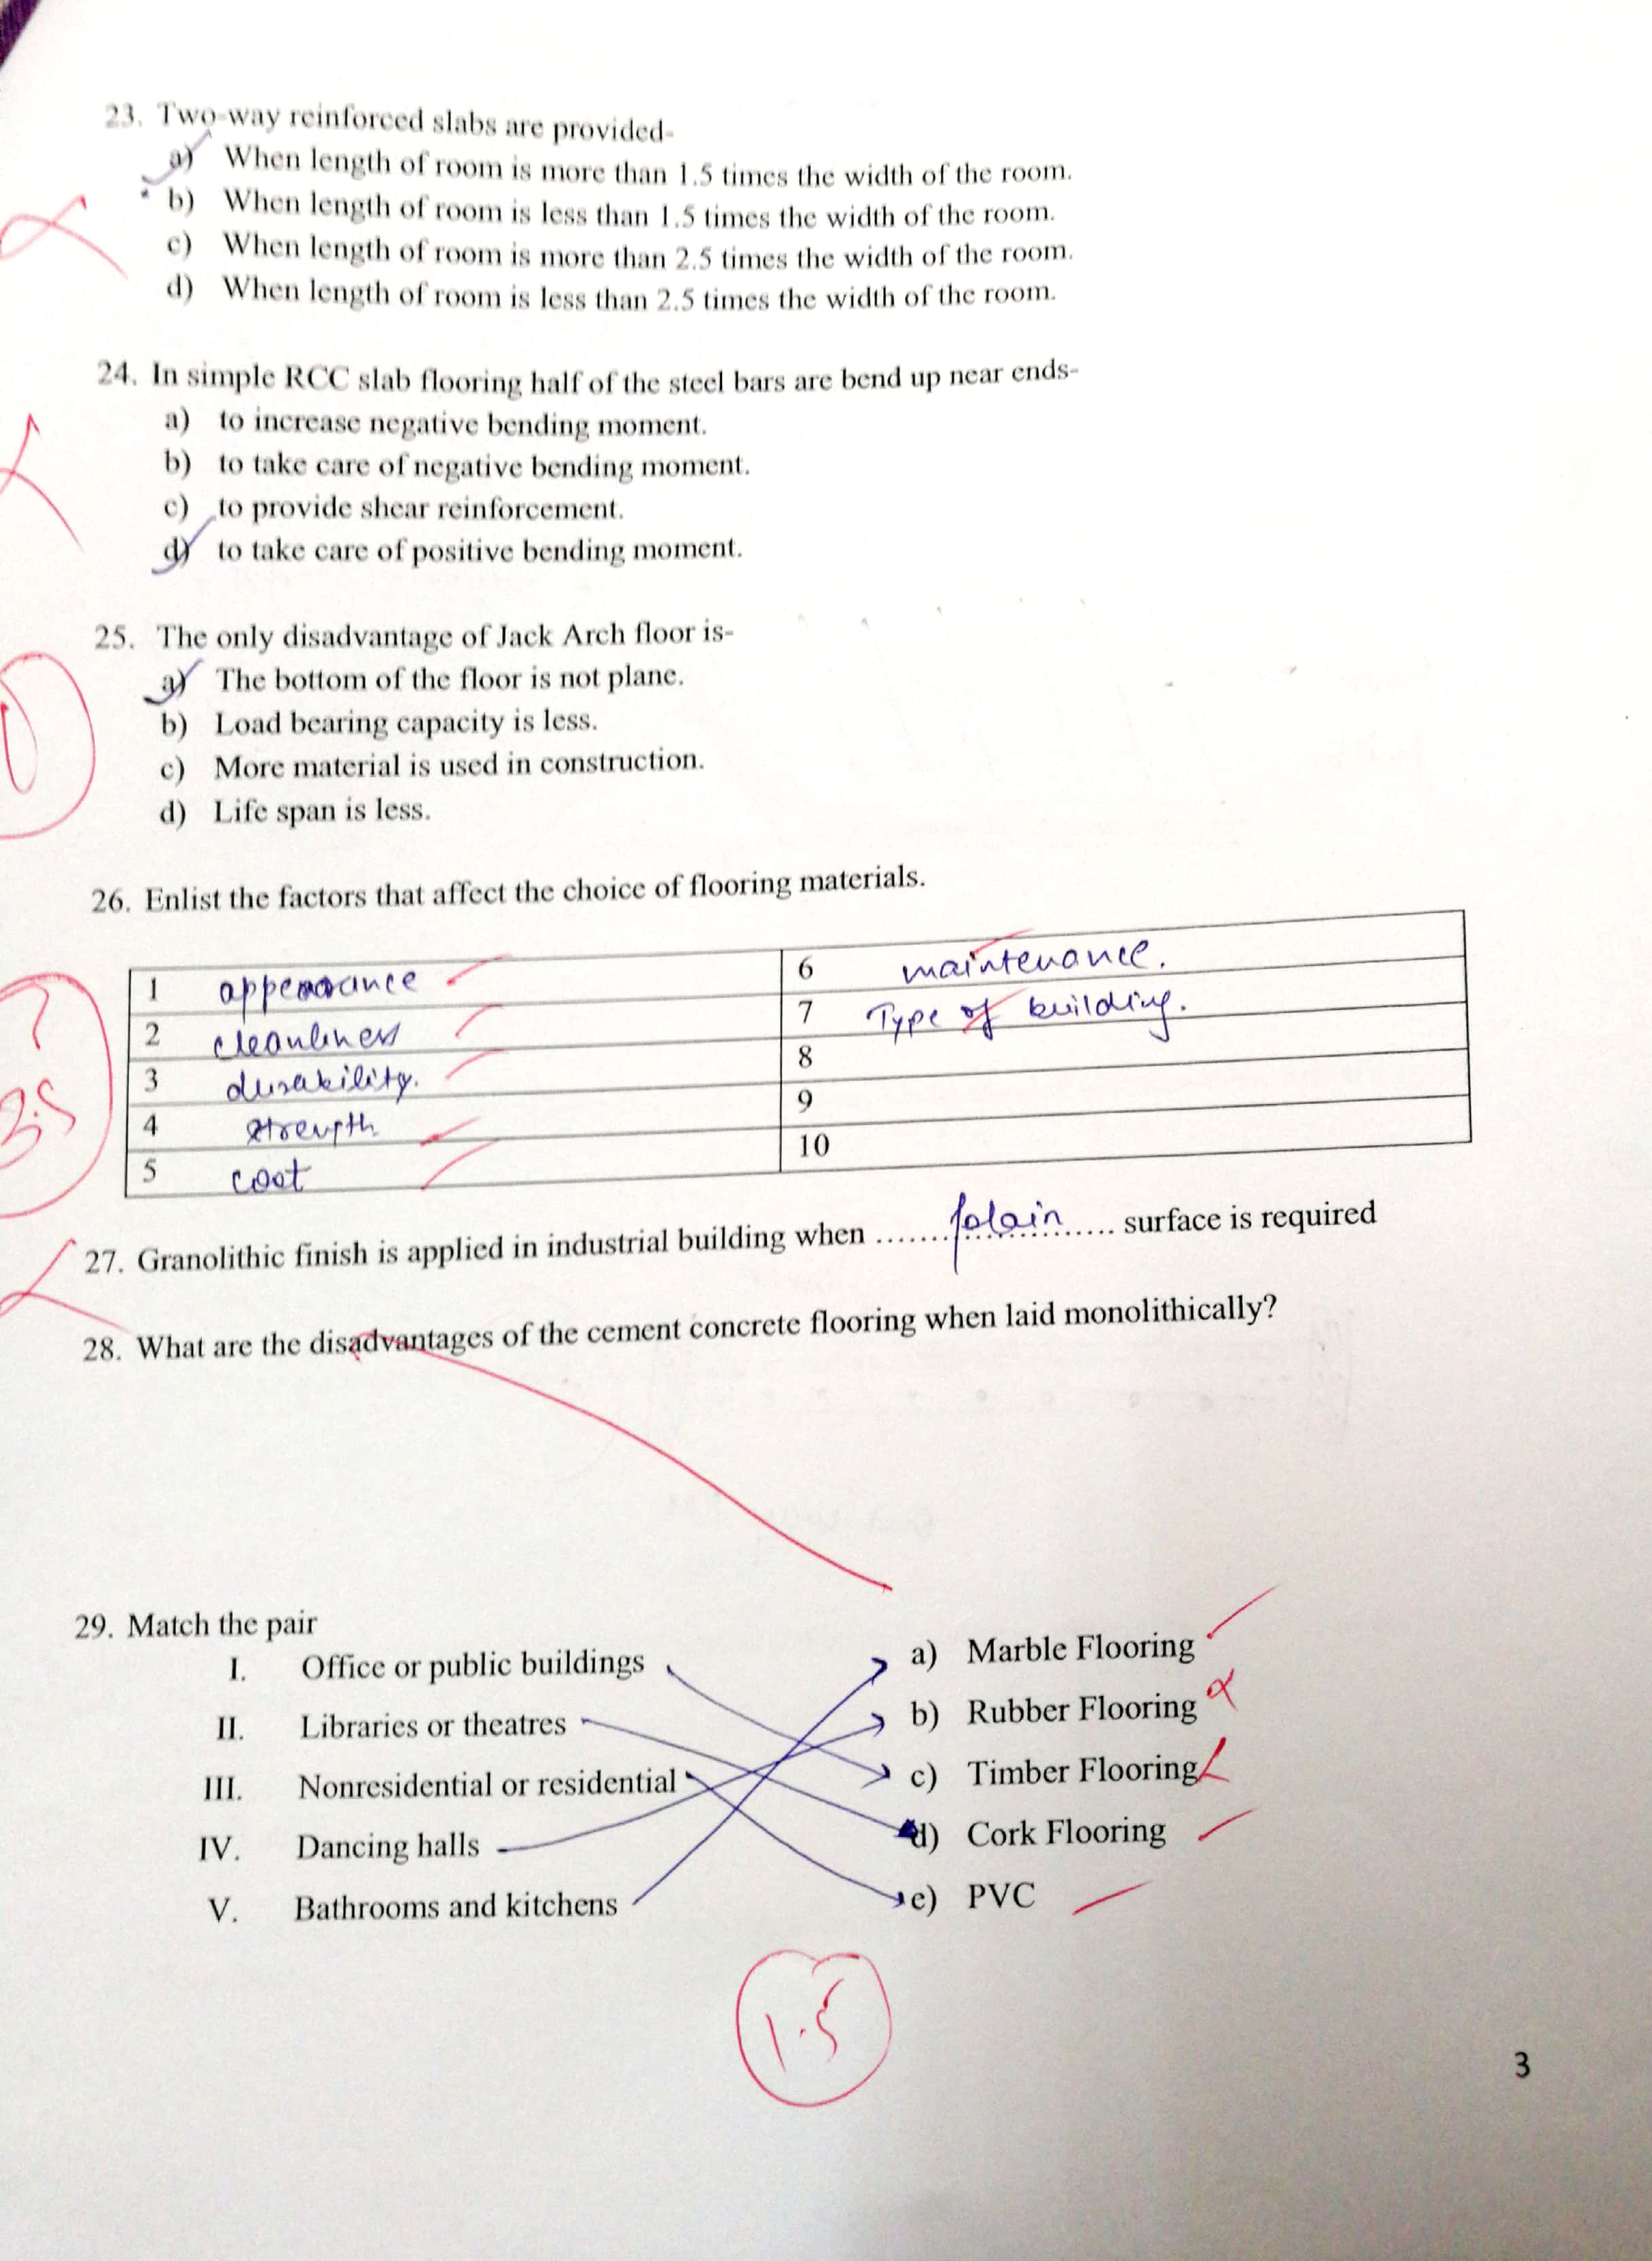 23. Two-way reinforced slabs are provided-
a) When length of room is more than 1.5 times the width of the room.
b) When length of room is less than 1.5 times the width of the room.
c) When length of room is more than 2.5 times the width of the room.
d) When length of room is less than 2.5 times the width of the room.
24. In simple RCC slab flooring half of the steel bars are bend up near ends-
a) to increase negative bending moment.
b) to take care of negative bending moment.
c) to provide shear reinforcement.
d) to take care of positive bending moment.
25. The only disadvantage of Jack Arch floor is-
a) The bottom of the floor is not plane.
b) Load bearing capacity is less.
c) More material is used in construction.
d) Life span is less.
1
26. Enlist the factors that affect the choice of flooring materials.
1 appearance 6 maintenance.
2 cleanliness 7 Type of building.
3 durability. 8
4 strength 9
5 cost 10
7
3.5
27. Granolithic finish is applied in industrial building when ....... plain ..... surface is required
28. What are the disadvantages of the cement concrete flooring when laid monolithically?
29. Match the pair
I. Office or public buildings a) Marble Flooring
II. Libraries or theatres b) Rubber Flooring
III. Nonresidential or residential c) Timber Flooring
IV. Dancing halls d) Cork Flooring
V. Bathrooms and kitchens e) PVC
1.5
3